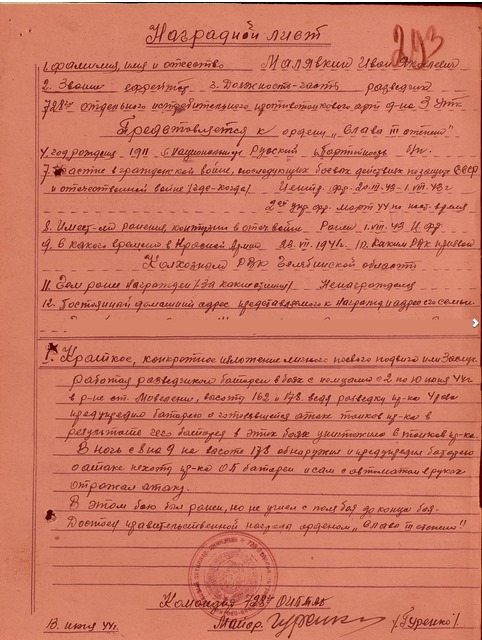 Наградной лист
293
1. фамилия, имя и отество Малявкин Иван
2. Звание ефрейтор 3. Должность-часть разведчик
728го отдельного истребительного противотанкового арт д-на
Представляется к ордену „Слава III степени"
4. год рожден. 1911 5. Национальность Русский 6. Партийность б/п.
7. Участие в гражданской войне, последующих боевых действиях по защите СССР
и отечественной войне (где-когда) Центр. фр. 20.III-43-1.VIII.43 г
2ой укр. фр. март 44 по наст. время
8. Имеет-ли ранения, контузии в отеч войне Ранен 1.VIII.43 Ц. фр.
9. С какого времени в Красной Армии 23.VII.1941г. 10. Каким РВК призван
Колхозным РВК Челябинской области
11. Чем ранее награжден (за какие отличия) Ненагражден
12. Постоянный домашний адрес представляемого к награжд и адрес его семьи
1. Краткое, конкретное изложение личного боевого подвига или заслуг
Работая разведчиком батареи в боях с немцами с 2 по 10 июня 44г
в р-не ст. высоты 162 и 178. ведя разведку пр-ка
предупредил батарею о готовящейся атаке танков пр-ка в
результате чего батарея в этих боях уничтожила 6 танков пр-ка.
В ночь с 8 на 9 на высоте 178 обнаружил и предупредил батарею
о атаке пехоты пр-ка ОП батареи и сам с автоматом в руках
отражал атаку.
В этом бою был ранен, но не ушел с поля боя до конца боя.
Достоин правительственной награды орденом „Слава III степени"
Командир 728го ОИПТАД
Майор. Гуренко /Гуренко/
13. июня 44г.